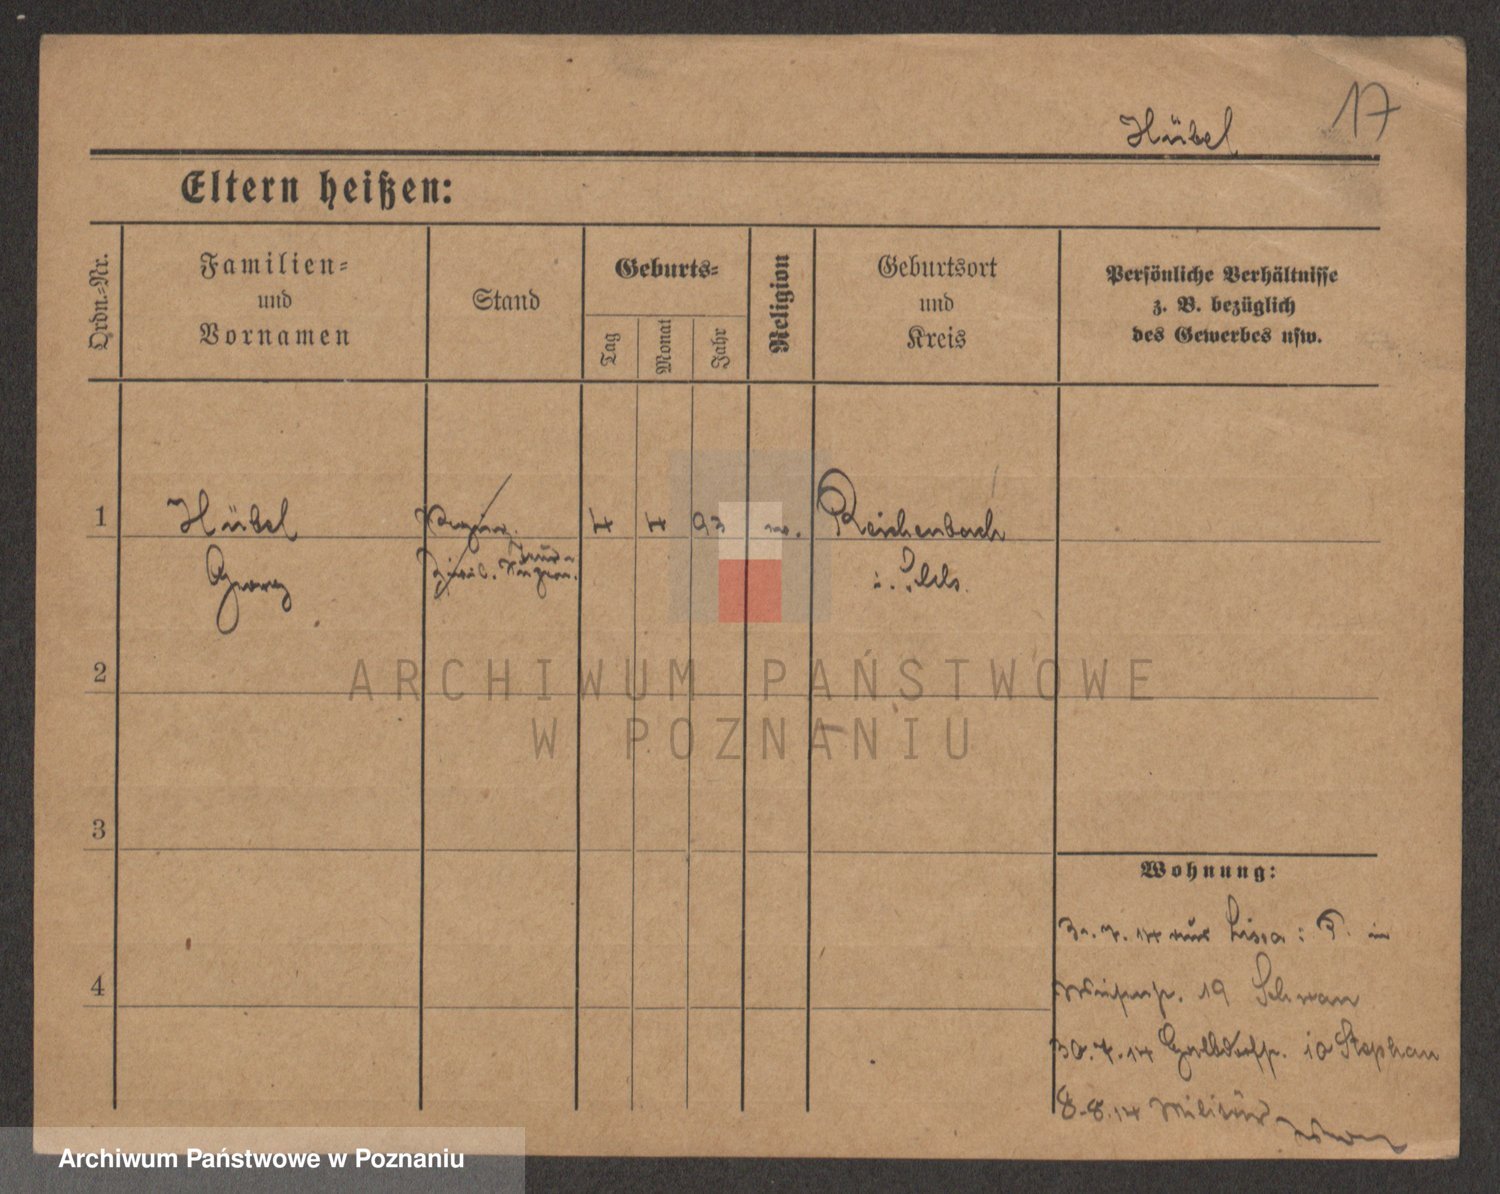 17
Hübel
Eltern heißen:
Ordn.-Nr.
Familien-
und
Vornamen
Stand
Geburts-
Tag
Monat
Jahr
Religion
Geburtsort
und
Kreis
Persönliche Verhältnisse
z. B. bezüglich
des Gewerbes usw.
1
Hübel
Georg
4
4
93
Reichenbach
i. Schls.
2
3
4
Wohnung:
7. 14 aus Lissa
19 Schwan
30.7.14 10 Stephan
8.8.14 Militär
ARCHIWUM PAŃSTWOWE
W POZNANIU
Archiwum Państwowe w Poznaniu